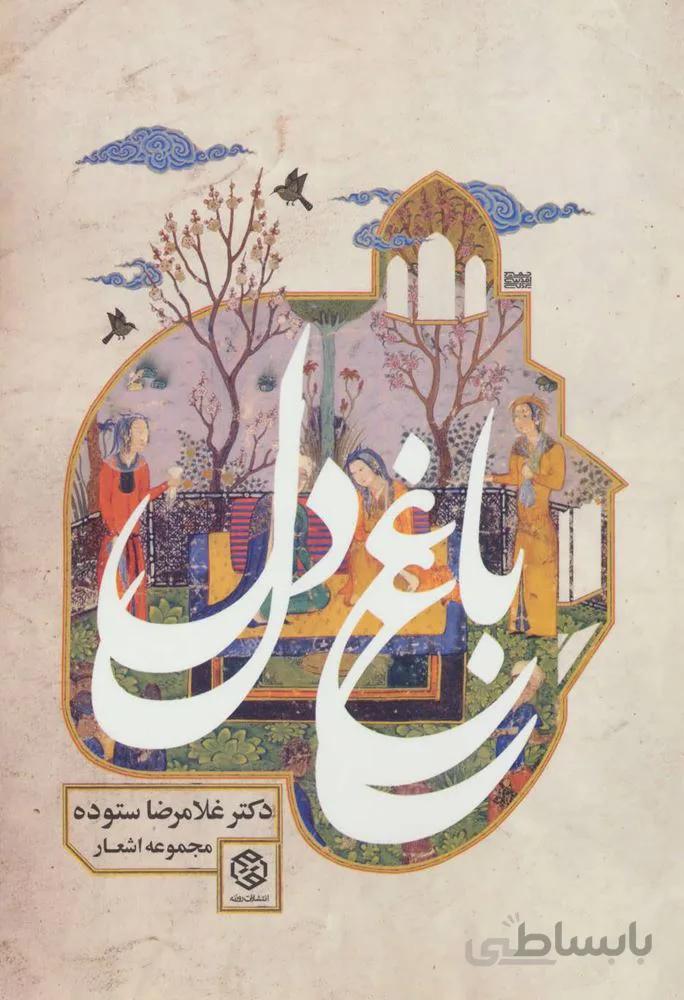 باغ دل
دکتر غلامرضا ستوده
مجموعه اشعار
انتشارات روزنه
بابساطی